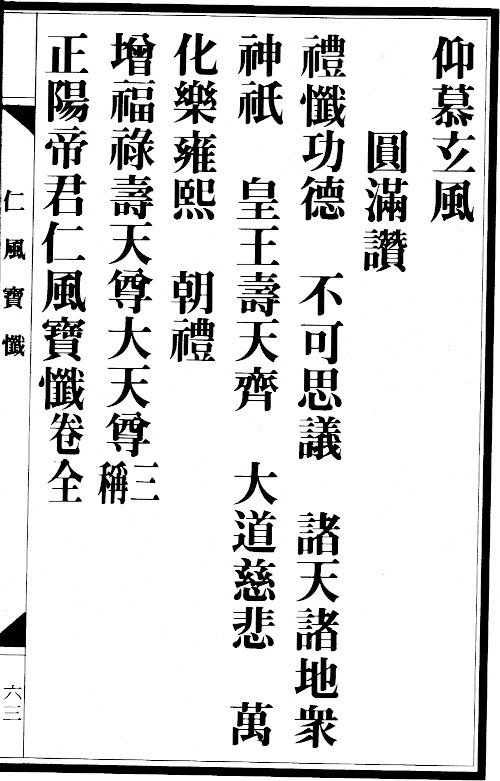 仰慕玄風
圓滿讚
禮懺功德　不可思議　諸天諸地衆
神祇　皇王壽天齊　大道慈悲　萬
化樂雍熙　朝禮
增福祿壽天尊大天尊三稱
正陽帝君仁風寶懺卷全
仁風寶懺
六三